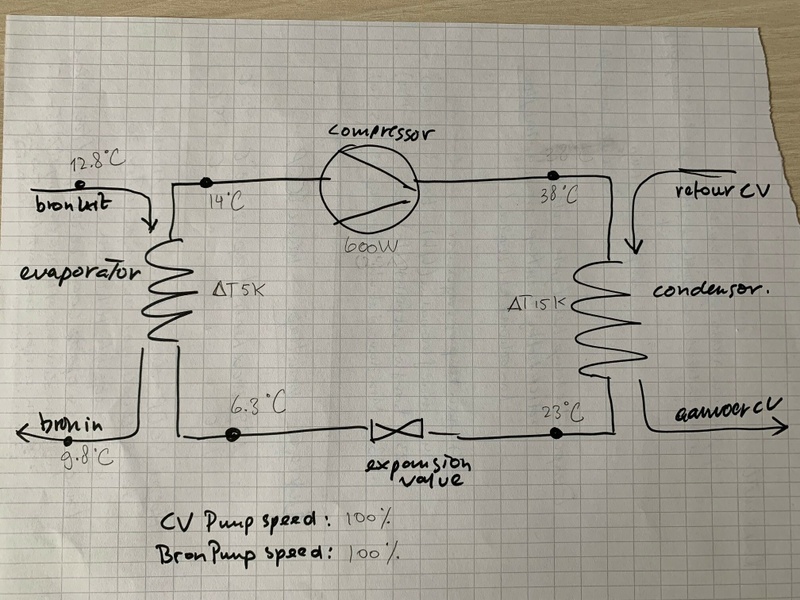 compressor
12.8°C
bron uit
14°C
38°C
retour CV
600W
evaporator
ΔT 5K
ΔT 15K
condensor.
6.3°C
23°C
bron in
9.8°C
aanvoer CV
expansion
valve
CV Pump speed: 100%
Bron Pump speed: 100%